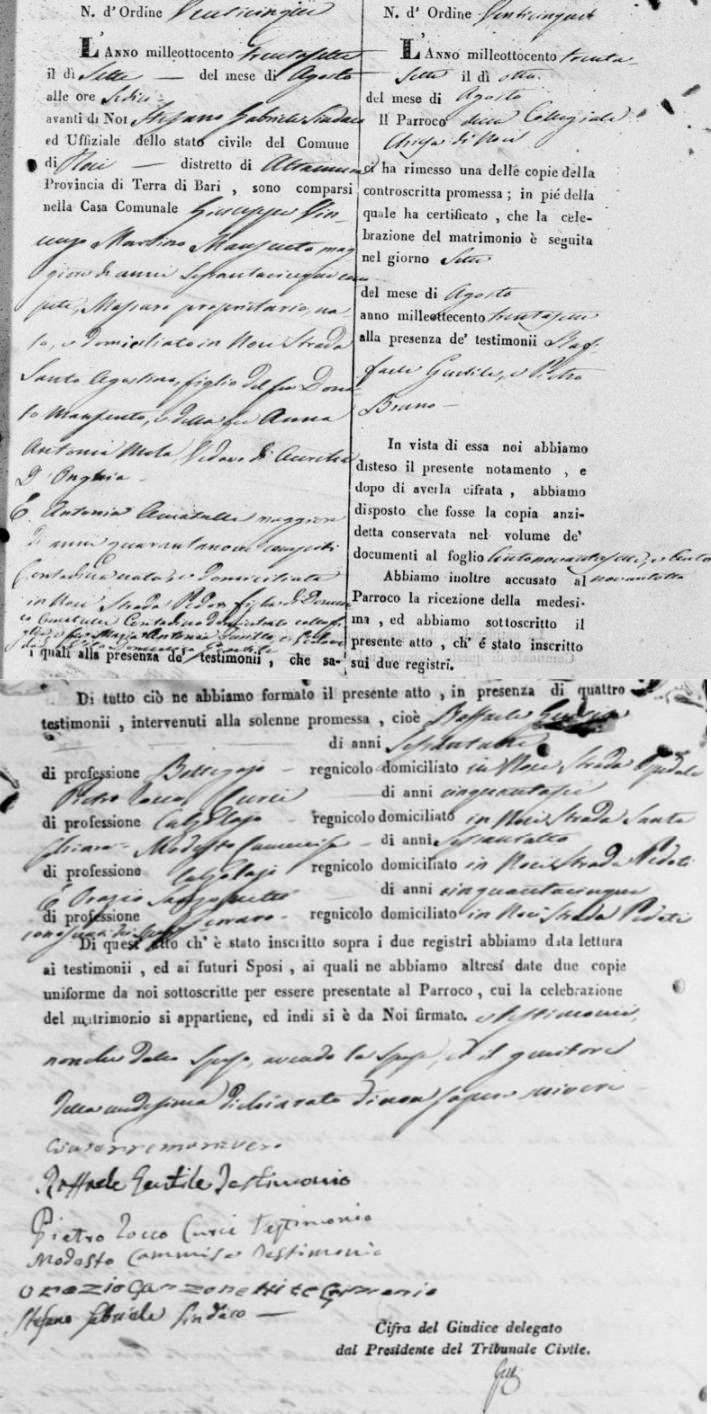 N. d' Ordine Venticinque
L'Anno milleottocento trentasette
il dì Sette — del mese di Agosto
alle ore Sedici
avanti di Noi Stefano Gabriele Sindaco
ed Uffiziale dello stato civile del Comune
di Noci — distretto di Altamura
Provincia di Terra di Bari , sono comparsi
nella Casa Comunale Giuseppe Vin-
cenzo Martino Mansueto, mag
giore di anni Sessantacinque com
piti, Massaro proprietario, na
to, e domiciliato in Noci Strada
Santo Agostino, figlio del fu Dona
to Mansueto, e della fu Anna
Antonia Mola, Vedovo di Aurelia
D'Onghia —
E Antonia Amatulli maggiore
di anni quarantanove compiti
Contadina nata, e domiciliata
in Noci Strada figlia di Domeni
co Amatulli Contadino domiciliato
e fu Maria Antonia e Vedova
di Domenico Gentile
i quali alla presenza de' testimonii , che sa-
N. d' Ordine Venticinque
L'Anno milleottocento trenta-
sette il dì otto
del mese di Agosto
Il Parroco della Collegiale
Chiesa di Noci
ci ha rimesso una delle copie della
controscritta promessa ; in pié della
quale ha certificato , che la cele-
brazione del matrimonio è seguita
nel giorno Sette
del mese di Agosto
anno milleottecento trentasette
alla presenza de' testimonii Raf-
faele Gentile, e Pietro
Bruno —
In vista di essa noi abbiamo
disteso il presente notamento , e
dopo di averla cifrata , abbiamo
disposto che fosse la copia anzi-
detta conservata nel volume de'
documenti al foglio centonovantasette, e cento
novantotto
Abbiamo inoltre accusato al
Parroco la ricezione della medesi-
ma , ed abbiamo sottoscritto il
presente atto , ch' é stato inscritto
sui due registri.
Di tutto ciò ne abbiamo formato il presente atto , in presenza di quattro
testimonii , intervenuti alla solenne promessa , cioè Raffaele Gentile
di anni
di professione Bottegajo — regnicolo domiciliato in Noci Strada Ospedale
Pietro Rocco Curci di anni cinquantasei
di professione Calzolajo regnicolo domiciliato in Noci Strada Santa
Chiara — Modesto di anni Sessantotto
di professione Calzolajo regnicolo domiciliato in Noci Strada Pedoti
E Orazio Ganzonetti di anni cinquantacinque
di professione Ferraro — regnicolo domiciliato in Noci Strada Pedoti
Di quest' atto ch' è stato inscritto sopra i due registri abbiamo data lettura
ai testimonii , ed ai futuri Sposi , ai quali ne abbiamo altresí date due copie
uniforme da noi sottoscritte per essere presentate al Parroco , cui la celebrazione
del matrimonio si appartiene, ed indi si è da Noi firmato. e testimonii,
nonche dallo Sposo, avendo la Sposa, ed il genitore
della medesima dichiarato di non sapere scrivere
Raffaele Gentile Testimonio
Pietro Rocco Curci Testimonio
Modesto Testimonio
Orazio Ganzonetti testimonio
Stefano Gabriele Sindaco —
Cifra del Giudice delegato
dal Presidente del Tribunale Civile.